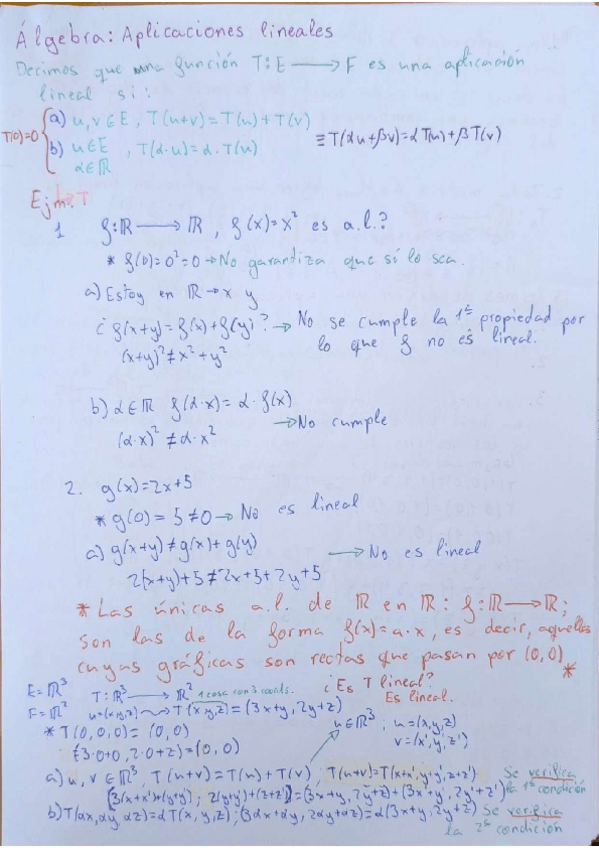 Álgebra: Aplicaciones lineales
Decimos que una función T: E → F es una aplicación
lineal si:
T(0)=0 { a) u, v ∈ E, T(u+v) = T(u) + T(v)
b) u ∈ E, T(α·u) = α·T(u) ≡ T(αu+βv) = αT(u) + βT(v)
α ∈ ℝ
Ejm:
1 f: ℝ → ℝ, f(x) = x² es a.l.?
* f(0) = 0² = 0 → No garantiza que sí lo sea.
a) Estoy en ℝ → x y
¿f(x+y) = f(x) + f(y)? → No se cumple la 1ª propiedad por
(x+y)² ≠ x² + y² lo que f no es lineal.
b) α ∈ ℝ f(α·x) = α·f(x)
→ No cumple
(α·x)² ≠ α·x²
2. g(x) = 2x+5
* g(0) = 5 ≠ 0 → No es lineal
a) g(x+y) ≠ g(x) + g(y) → No es lineal
2(x+y)+5 ≠ 2x+5+2y+5
* Las únicas a.l. de ℝ en ℝ: f: ℝ → ℝ;
son las de la forma f(x) = a·x, es decir, aquellas
cuyas gráficas son rectas que pasan por (0,0) *
E = ℝ³ T: ℝ³ → ℝ² 1 cosa con 3 coords. ¿Es T lineal?
F = ℝ² u=(x,y,z) ⇝ T(x,y,z) = (3x+y, 2y+z) Es lineal.
* T(0,0,0) = (0,0) u ∈ ℝ³; u=(x,y,z)
(3·0+0, 2·0+z) = (0,0) v=(x',y',z')
a) u, v ∈ ℝ³, T(u+v) = T(u) + T(v); T(u+v) = T(x+x', y+y', z+z') Se verifica
(3(x+x')+(y+y'); 2(y+y')+(z+z')) = (3x+y, 2y+z) + (3x'+y', 2y'+z') la 1ª condición
b) T(αx, αy, αz) = αT(x,y,z); (3αx+αy, 2αy+αz) = α(3x+y, 2y+z) Se verifica
la 2ª condición